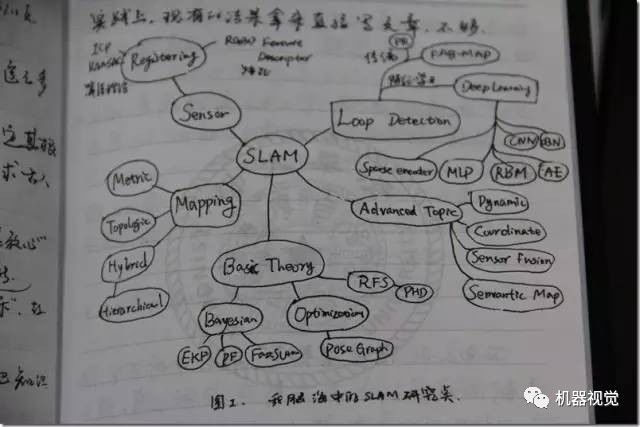 实践上,现有的结果拿来直接写文章,不够.
ICP
RANSAC
Registering
RGBD Feature
Descriptor
Sensor
SLAM
PR
FAB-MAP
传统
Deep Learning
Loop Detection
CNN
Sparse encoder
MLP
RBM
AE
Metric
Topologic
Mapping
Hybrid
Hierarchical
Advanced Topic
Dynamic
Coordinate
Sensor Fusion
Semantic Map
Basic Theory
RFS
PHD
Bayesian
Optimization
EKF
PF
FastSLAM
Pose Graph
图1. 我脑海中的SLAM研究类.
这么多
机器视觉